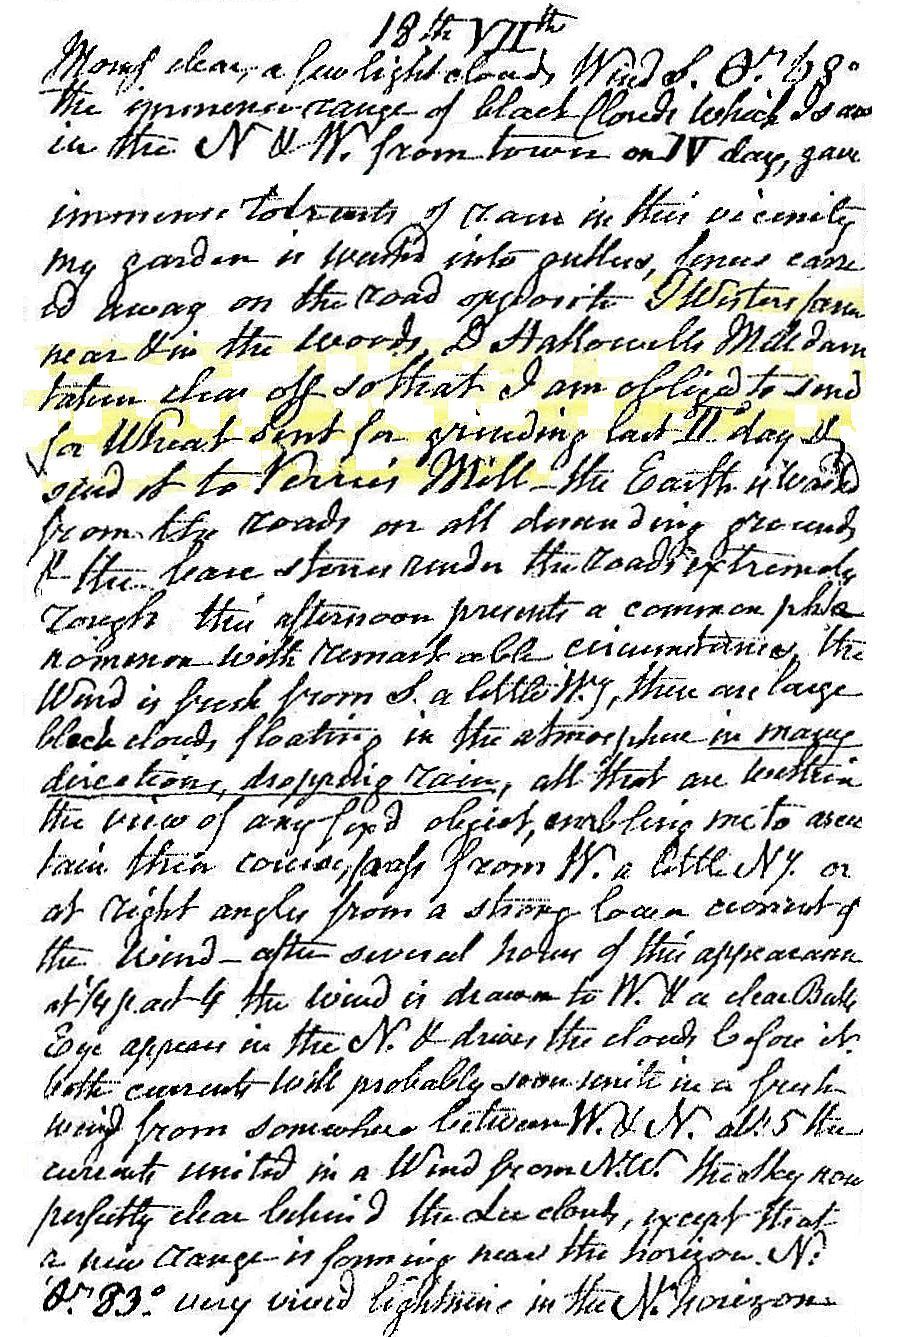 18th VIIth
Morng clear, a few light clouds Wind S. Θr. 68°
the immence range of black Clouds which I saw
in the N & W. from town on IV day, gave
immence torrents of rain in this vicinity
my garden is washd into gullies, fences carri
ed away on the road opposite farm
near & in the woods, D Hallowells Mill dam
taken clear off so that I am obliged to send
for Wheat Sent for grinding last IId day &
send it to Mill - the Earth is washd
from the roads on all descending grounds
& the bare stones render the roads extremely
rough this afternoon presents a common phe
nomenon with remarkable circumstances, the
Wind is fresh from S. a little Wy, there are large
black clouds floating in the atmosphere in many
directions, dropping rain, all that are within
the view of any fixd object, enabling me to ascer
tain their course, pass from W. a little Ny. or
at right angles from a strong lower current of
the Wind - after several hours of this appearance
at 1/4 past 4 the wind is drawn to W. & a clear Bulls
Eye appears in the N. & drives the clouds before it.
both currents will probably soon unite in a fresh
wind from somewhere between W. & N. abt. 5 the
currents united in a Wind from N.W. the Sky now
perfectly clear behind the clouds, except that
a new range is forming near the horizon N.
Θr. 83° very vivid lightning in the N. horizon